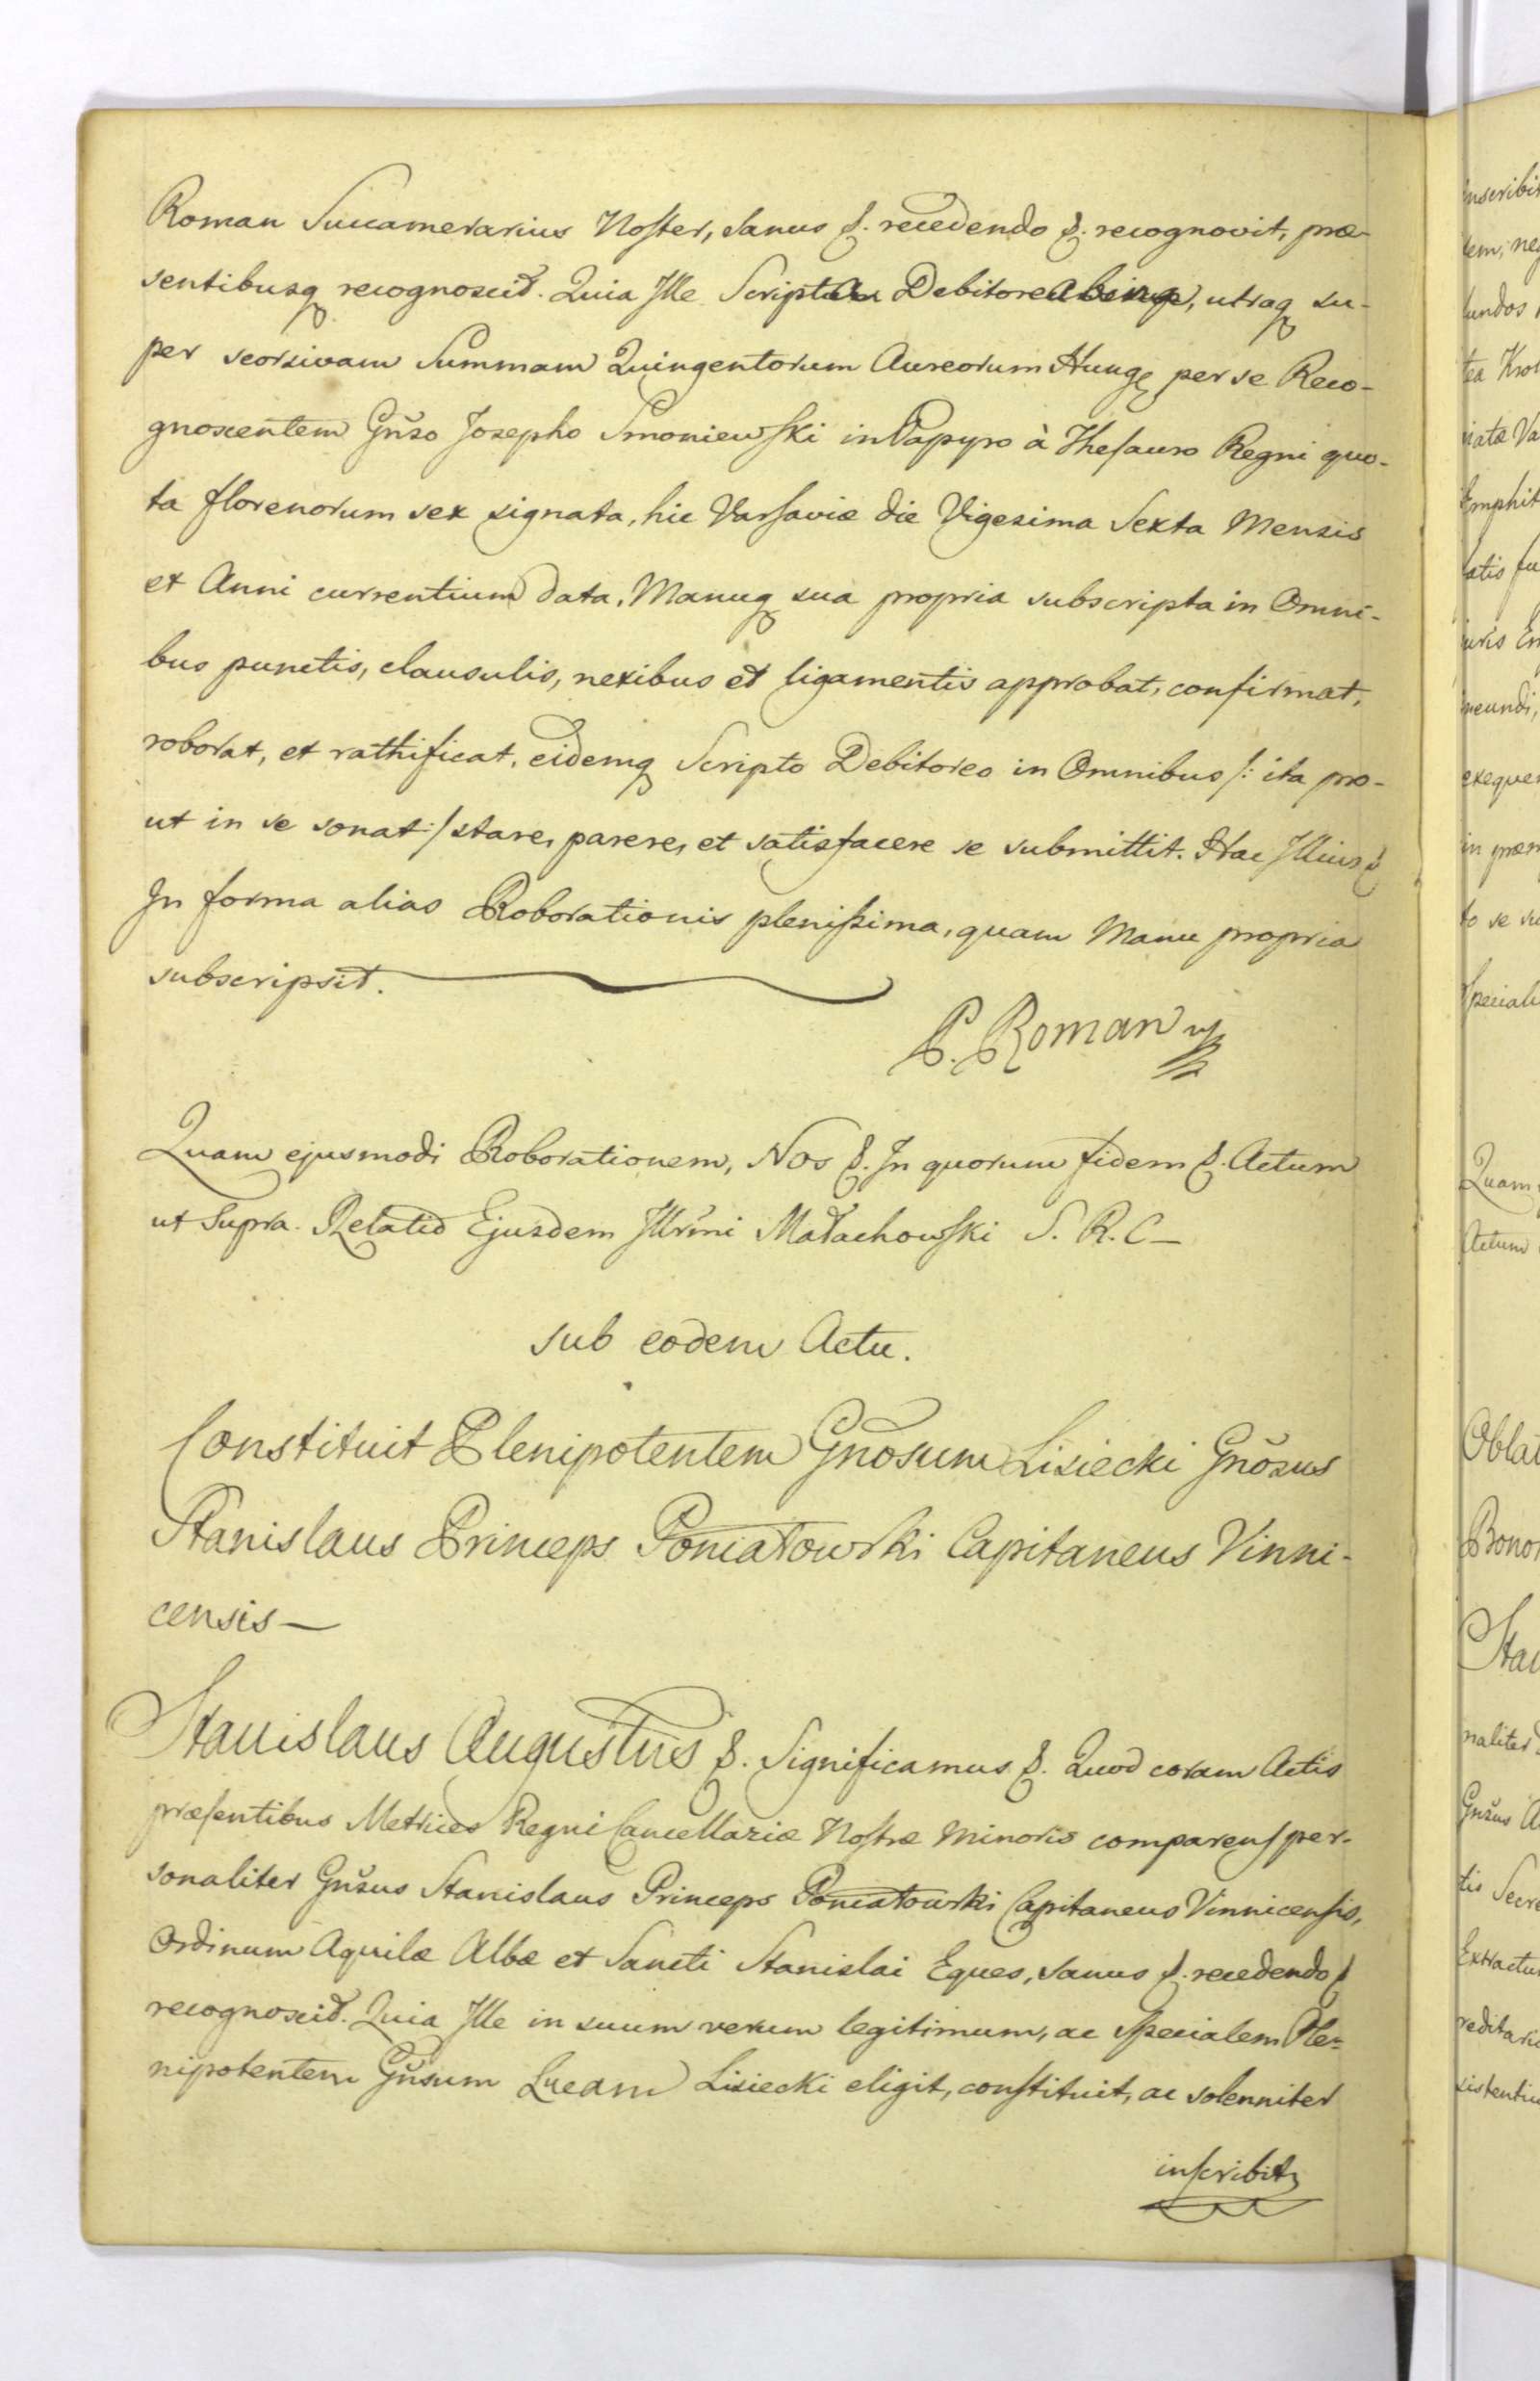 Roman Succamerarius Noster, sanus &. recedendo &. recognovit, præ-
sentibusq recognoscit. Quia Ille Scripta Debitorea binaq, utraq su-
per seorsivam Summam Quingentorum Aureorum Hungq per se Reco-
gnoscentem Gnso Josepho Smoniewski in Papyro à Thesauro Regni quo-
ta florenorum sex signata, hic Varsaviæ die Vigesima Sexta Mensis
et Anni currentium data, Manuq sua propria subscripta in Omni-
bus punctis, clausulis, nexibus et ligamentis approbat, confirmat,
roborat, et rathificat, eidemq Scripto Debitoreo in Omnibus /: ita pro-
ut in se sonat :/ stare, parere, et satisfacere se submittit. Hac Illius &
In forma alias Roborationis plenissima, quam Manu propria
subscripsit.
P. Roman
Quam ejusmodi Roborationem, Nos &. In quorum fidem &. Actum
ut Supra. Relatio Ejusdem Illrmi Małachowski S. R. C _
sub eodem Actu.
Constituit Plenipotentem Gnosum Lisiecki Gnosus
Stanislaus Princeps Poniatowski Capitaneus Vinni-
censis —
Stanislaus Augustus &. Significamus &. Quod coram Actis
præsentibus Metrices Regni Cancellariæ Nostræ Minoris comparens per-
sonaliter Gnsus Stanislaus Princeps Poniatowski Capitaneus Vinnicensis,
Ordinum Aquilæ Albæ et Sancti Stanislai Eques, sanus &. recedendo &
recognoscit. Quia Ille in suum verum legitimum, ac specialem Ple-
nipotentem Gnsum Lucam Lisiecki eligit, constituit, ac solenniter
inscribit